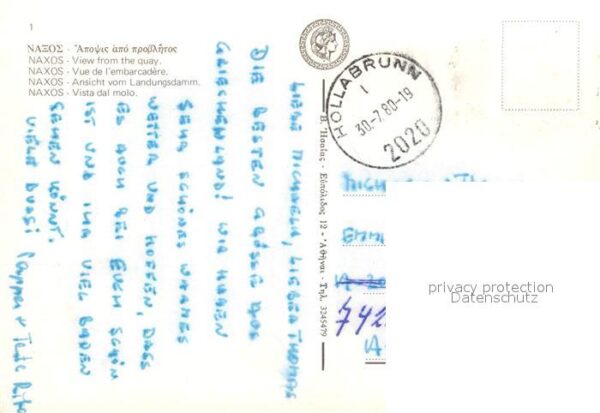 1
ΝΑΞΟΣ - Ἄποψις ἀπό προβλῆτος
NAXOS - View from the quay.
NAXOS - Vue de l'embarcadère.
NAXOS - Ansicht vom Landungsdamm.
NAXOS - Vista dal molo.
LIEBE MICHAELA, LIEBER THOMAS
DIE BESTEN GRÜSSE AUS
GRIECHENLAND! WIR HABEN
SEHR SCHÖNES WARMES
WETTER UND HOFFEN, DASS
ES AUCH BEI EUCH SCHÖN
IST UND IHR VIEL BADEN
GEHEN KÖNNT.
VIELE BUSSI
Tante
Εὐπόλιδος 12 - Ἀθῆναι - Τηλ. 3245479
HOLLABRUNN
1
30.-7.80-19
2020
742
privacy protection
Datenschutz